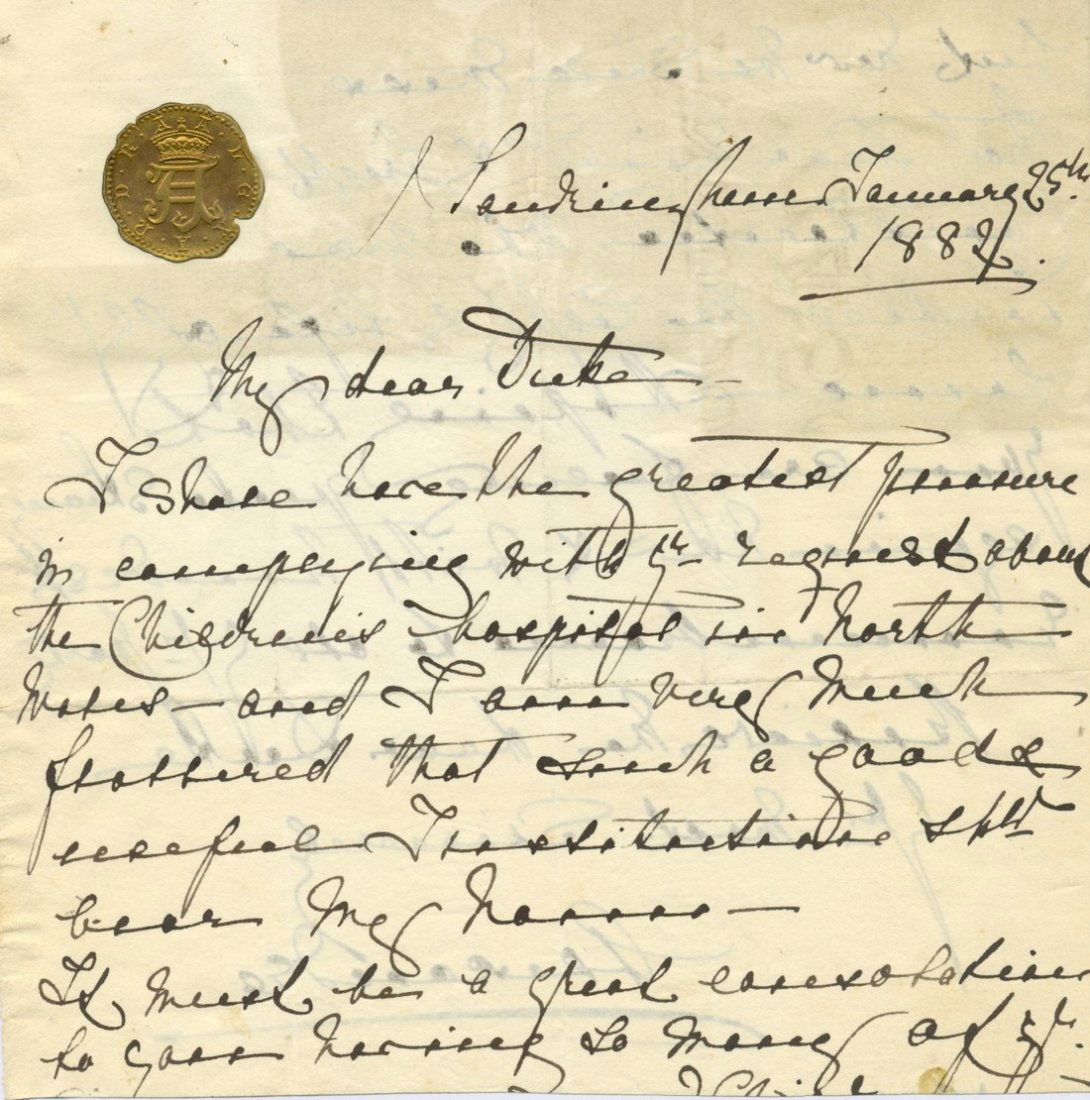 Sandringham January 25th.
1882.
My dear Duke –
I shall have the greatest pleasure
in complying with yr request about
the Children's hospital in North
Wales – and I am very much
flattered that such a good &
useful Institution shld
bear My Name –
It must be a great consolation
to you having so many of yr.